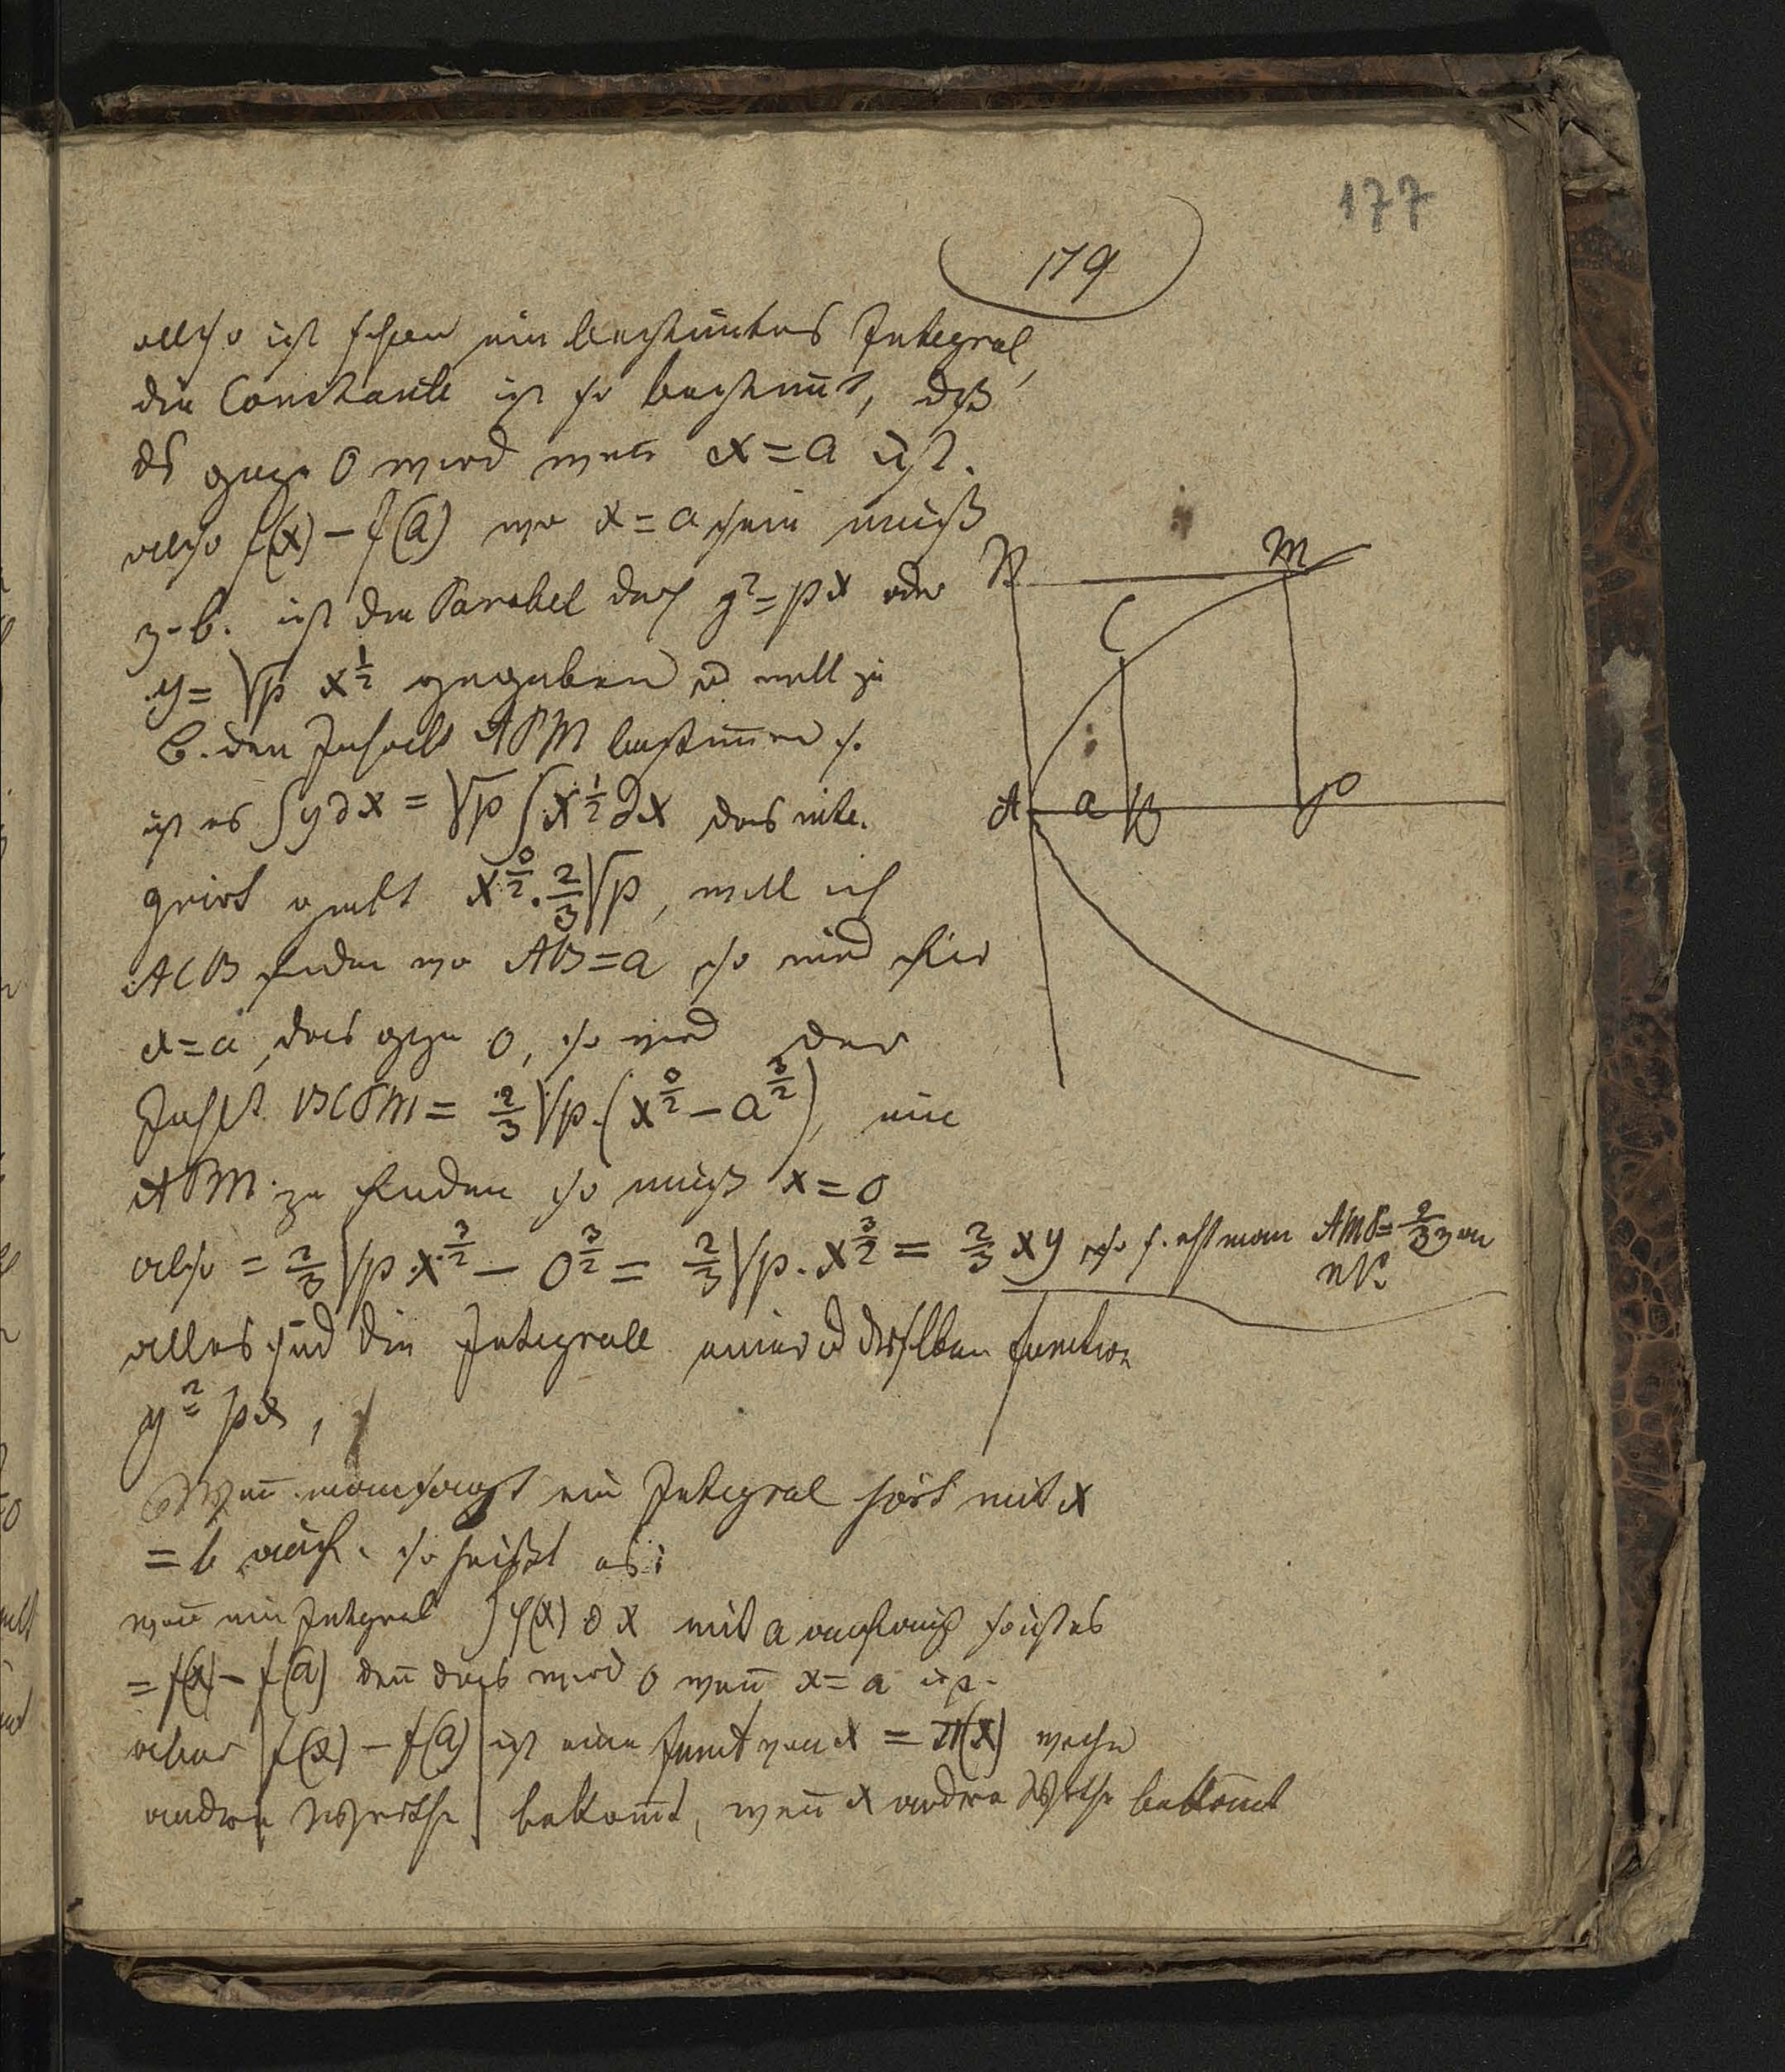 177
179
also ist schon ein bestimtes Integral,
die Constante ist so bestimt, dß
ds ganze 0 wird wen x = a ist.
also f(x) – f(a) wo x = a sein muß
z. b. ist die Parabel durch y² = px oder
y = √p x^½ gegeben u will zu
B. den Inhalt APM bestimmen so
ist es ∫y∂x = √p ∫x^½ ∂x das inte-
grirt giebt x^3/2 · 2/3 √p, will ich
ACB finden wo AB = a so wird für
x = a das ganze 0, so wird der
Inhalt BCPM = 2/3 √p · (x^3/2 – a^3/2), um
APM zu finden so muß x = 0
also = 2/3 √p · x^3/2 – 0^3/2 = 2/3 √p · x^3/2 = 2/3 xy so sieht man AMP = 2/3 von
alles sind die Integrale einer u derselben function
y² = px,
Wen man sagt ein Integral hört mit x
= b auf. so heißt es:
wen ein Integral ∫φ(x) ∂x mit a anfängt heist es
= f(x) – f(a) den das wird 0 wen x = a ist.
aber f(x) – f(a) ist eine funct von x = π(x) welche
andere Werthe bekomt, wen x andere Werthe bekomt
N M
C
A a B P